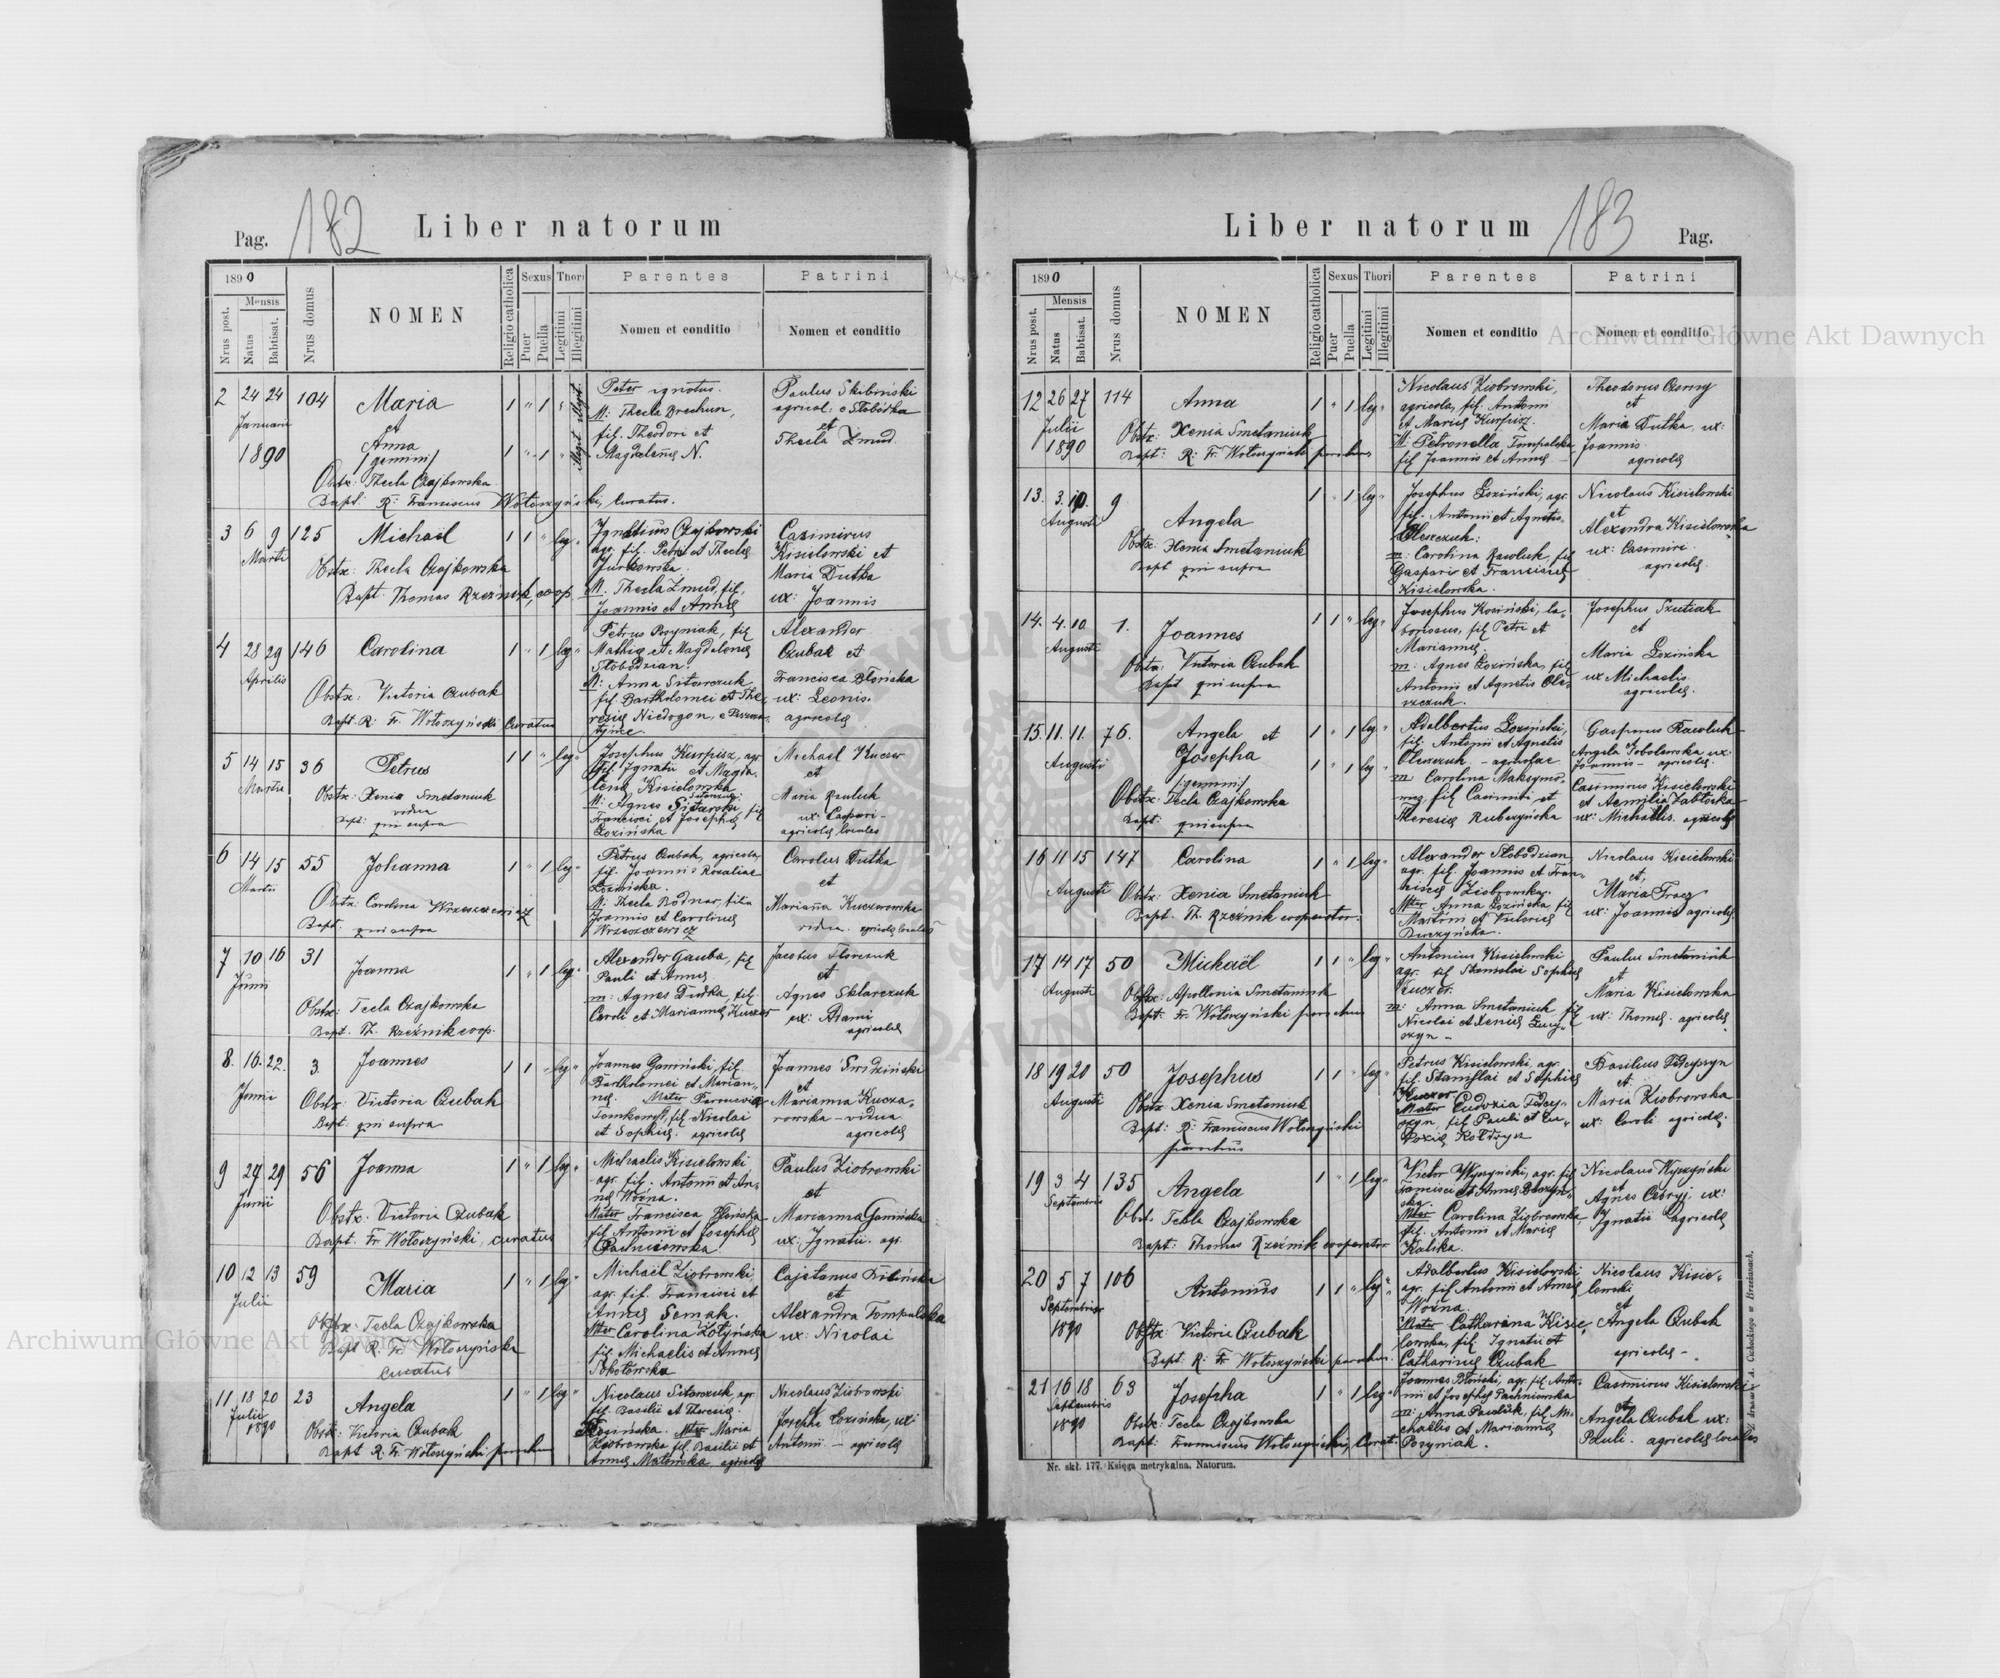 Pag. 182 Liber natorum
1890
Nrus post.
Mensis
Natus
Babtisat.
Nrus domus
NOMEN
Religio catholica
Sexus
Puer
Puella
Thori
Legitimi
Illegitimi
Parentes
Nomen et conditio
Patrini
Nomen et conditio
2 24 24 104
Januarii
1890
Maria
et
Anna
/gemini/
Obstx: Thecla Czajkowska
Bapt: R: Franciscus Wołoszyński, curatus.
1 " 1 " illegit
1 " 1 " illegit
Pater ignotus.
M: Thecla Brechun,
fil. Theodori et
Magdalenę N.
Paulus Skibiński
agricol: e Słobódka
et
Thecla Żmud.
3 6 9 125
Martii
Michaël
Obstx: Thecla Czajkowska
Bapt. Thomas Rzeźnik, coop.
1 1 " leg "
Ignatius Czajkowski
agr. fil. Petri et Theclę
Jurkowska.
M. Thecla Żmud, fil.
Joannis et Annę
Casimirus
Kisielowski et
Maria Dutka
ux: Joannis
4 28 29 146
Aprilis
Carolina
Obstx: Victoria Czubak
Bapt. R: Fr. Wołoszyński Curatus
1 " 1 leg "
Petrus Pozyniak, fil
Mathię et Magdalenę
Słobodzian.
M: Anna Sitarczuk
fil. Bartholomei et The
resię Niedogon,
Alexander
Czubak et
Francisca Błońska
ux: Leonis.
agricolę
5 14 15 36
Martii
Petrus
Obstx: Xenia Smetaniuk
vidua
Bapt: qui supra
1 1 " leg "
Josephus Kurpisz, agr.
fil. Ignatii et Magda
lenę Kisielowska
M: Agnes Sitarski fil
Francisci et Josephę
Łozińska
Michaël Kuczer
et
Maria Rauluk
ux: Caspari
agricolę locales
6 14 15 55
Martii
Johanna
Obstx: Carolina Wrzeszczewicz
Bapt. qui supra
1 " 1 leg "
Petrus Czubak, agricola,
fil. Joannis Rozaliae
Łozińska.
M: Thecla Bodnar, filia
Joannis et Carolinę
Wrzeszczewicz
Carolus Dutka
et
Marianna Kuczerowska
vidua. agricolę locales
7 10 16 31
Junii
Joanna
Obstx: Tecla Czajkowska
Bapt. Th. Rzeźnik coop.
1 " 1 leg "
Alexander Gauba, fil
Pauli et Annę
m: Agnes Dutka, fil.
Caroli et Mariannę Kuczer
Jacobus Florczuk
et
Agnes Sklarczuk
ux: Adami
agricolę
8. 16. 22. 3.
Junii
Joannes
Obstx: Victoria Czubak
Bapt. qui supra
1 1 " leg "
Joannes Gamiński, fil.
Bartholomei et Marian
nę. Mater
Tomkowsk, fil. Nicolai
et Sophię. agricolę
Joannes Świdziński
et
Marianna Kucza
rowska – vidua
agricolę
9 27 29 56
Junii
Joanna
Obstx: Victoria Czubak
Bapt. Fr Wołoszyński, curatus
1 " 1 leg "
Michaelis Kisielowski
agr. fil. Antonii et An
nę Woźna.
Mater Francisca Błońska
fil Antonii et Josephę
Pachniowska
Paulus Ziobrowski
et
Marianna Gamińska
ux: Ignatii. agr.
10 12 13 59
Julii
Maria
Obstx: Tecla Czajkowska
Bapt R: Fr Wołoszyński
curatus
1 " 1 leg "
Michaël Ziobrowski
agr. fil. Francisci et
Annę Semak.
Mter Carolina Żółyńska
fil. Michaelis et Annę
Sokołowska
Cajetanus Biliński
et
Alexandra Tompalska
ux: Nicolai
11 18 20 23
Julii
1890
Angela
Obstx: Victoria Czubak
Bapt R. Fr. Wołoszyński parochus
1 " 1 leg "
Nicolaus Sitarczuk, agr.
fil. Basilii et Theresię
Łozińska. Mter Maria
Ziobrowska fil. Basilii et
Annę Malowska, agricolę
Nicolaus Ziobrowski
et
Josepha Łozińska, ux:
Antonii – agricolę
Liber natorum 183 Pag.
1890
Nrus posit.
Mensis
Natus
Babtisat.
Nrus domus
NOMEN
Religio catholica
Sexus
Puer
Puella
Thori
Legitimi
Illegitimi
Parentes
Nomen et conditio
Patrini
Nomen et conditio
12 26 27 114
Julii
1890
Anna
Obstx: Xenia Smetaniuk
Bapt: R: Fr. Wołoszyński parochus
1 " 1 leg "
Nicolaus Ziobrowski,
agricola, fil. Antonii
et Marię Kurpisz.
M: Petronella Tompalska
fil Joannis et Annę –
Theodorus Czerny
et
Maria Dutka, ux:
Joannis.
agricolę
13. 3. 10. 9
Augusti
Angela
Obstx: Xenia Smetaniuk
Bapt qui supra
1 " 1 leg "
Josephus Łoziński, agr.
fil. Antonii et Agnetis
Oleszczuk:
m: Carolina Rawluk, fil
Gasparis et Franciscę
Kisielowska.
Nicolaus Kisielowski
et
Alexandra Kisielowska
ux: Casimiri.
agricolę
14. 4. 10. 1.
Augusti
Joannes
Obstx: Victoria Czubak
Bapt qui supra
1 1 " leg "
Josephus Kosiński, la-
boriosus, fil Petri et
Mariannę.
m: Agnes Łozińska, fil
Antonii et Agnetis Ole-
szczuk.
Josephus Szutiak
et
Maria Łozińska
ux Michaelis
agricolę.
15. 11. 11. 76.
Augusti
Angela et
Josepha
/gemini/
Obstx: Tecla Czajkowska
Bapt: qui supra
1 " 1 leg "
1 " 1 leg "
Adalbertus Łoziński,
fil. Antonii et Agnetis
Oleszczuk. – agricolae
m: Carolina Maksymo-
wicz, fil Casimiri et
Theresię Rubczyńska
Gasparus Rawluk
Angela Sobolewska ux:
Joannis – agricolę.
Casimirus Kisielowski
et Aemilia Zabłocka
ux: Michaelis. agricolę
16 11 15 147
Augusti
Carolina
Obstx: Xenia Smetaniuk
Bapt. Th. Rzeźnik cooperator.
1 " 1 leg "
Alexander Słobodzian
agr. fil. Joannis et Fran-
ciscę Ziobrowska.
Mter Anna Łozińska, fil
Martini et Victorię
Burczyńska.
Nicolaus Kisielowski
et,
Maria Tracz
ux: Joannis agricolę
17 14 17 50
Augusti
Michaël
Obstx: Apollonia Smetaniuk
Bapt: Fr. Wołoszyński parochus
1 1 " leg "
Antonius Kisielowski
agr. fil Stanislai Sophię
Kuczer.
m: Anna Smetaniuk fil
Nicolai et Xenię
Paulus Smetaniuk
et
Maria Kisielowska
ux: Thomę. agricolę
18 19 20 50
Augusti
Josephus
Obstx Xenia Smetaniuk
Bapt: R: Franciscus Wołoszyński
parochus
1 1 " leg "
Petrus Kisielowski, agr.
fil. Stanislai et Sophię
Kuczer.
Mater Eudoxia Fedey-
szyn, fil Pauli et Eu-
doxię Kołdzyn
Basilius Fedeyszyn
et
Maria Ziobrowska
ux: Caroli. agricolę.
19 3 4 135
Septembris
Angela
Obst. Tecla Czajkowska
Bapt: Thomas Rzeźnik cooperator
1 " 1 leg "
Victor Wyszyński, agr. fil
Francisci et Annę
Mter Carolina Ziobrowska
fil. Antonii et Marię
Kalika.
Nicolaus Wyszyński
et
Agnes ux:
Ignatii agricolę
20 5 7 106
Septembris
1890
Antonius
Obstx: Victoria Czubak
Bapt: R: Fr. Wołoszyński parochus.
1 1 " leg "
Adalbertus Kisielowski
agr. fil Antonii et Annę
Woźna.
Mater Catharina Kisie-
lowska, fil. Ignatii et
Catharinę Czubak
Nicolaus Kisie-
lowski
et
Angela Czubak
agricolę –
21 16 18 63
Septembris
1890
Josepha
Obstx: Tecla Czajkowska
Bapt: Franciscus Wołoszyński, Curat.
1 " 1 leg "
Joannes Błoński, agr. fil. Anto-
nii et Josephę Pachniowska
m: Anna Pawluk, fil. Mi-
chaelis et Mariannę
Pozyniak.
Casimirus Kisielowski
et
Angela Czubak ux:
Pauli. agricolę locales
Nr. skł. 177. Księga metrykalna. Natorum.
Archiwum Główne Akt Dawnych
Archiwum Główne Akt Dawnych